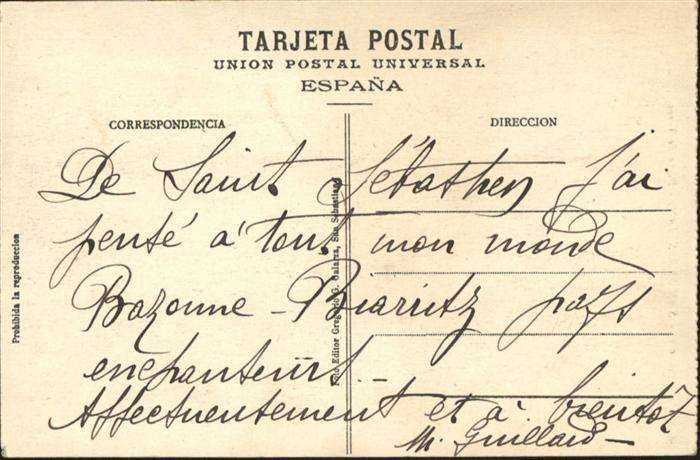 TARJETA POSTAL
UNION POSTAL UNIVERSAL
ESPAÑA
CORRESPONDENCIA
DIRECCION
De Saint Sébastien j'ai
pensé à tout mon monde
Bayonne - Biarritz pays
enchanteurs -
Affectueusement et à bientot
M. Guillard -
Prohibida la reproduccion
Foto Editor Gregorio G. Galarza, San Sebastian